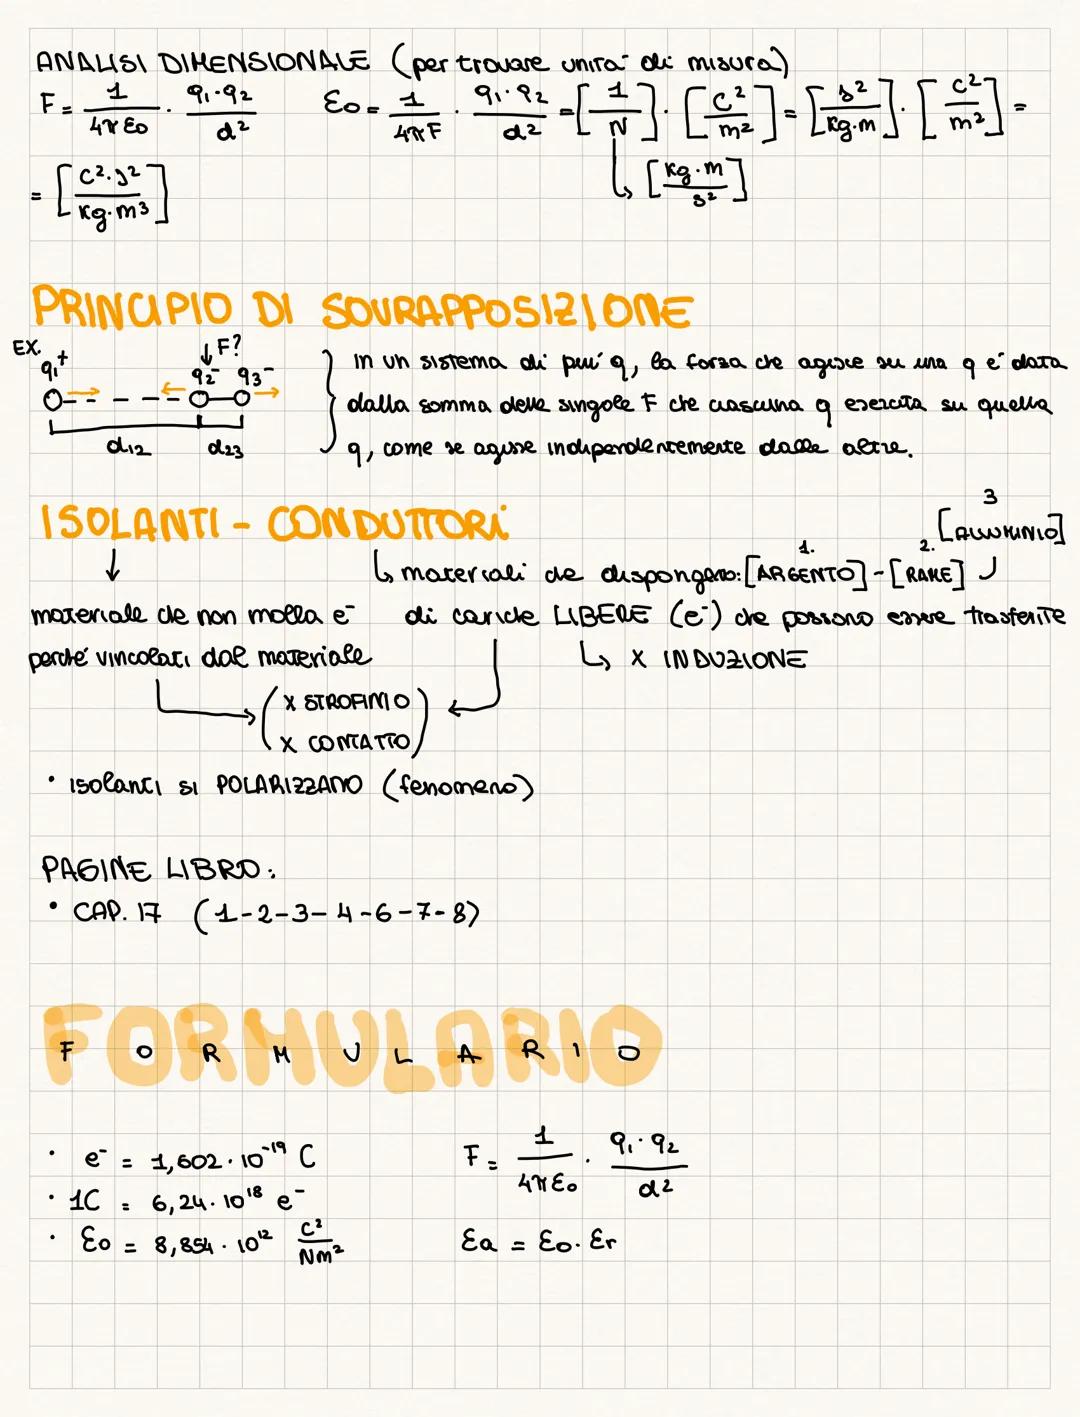 ANALISI DIMENSIONALE (per trovare unità di misura)
F = 1/4πε0 · q1·q2/d² ε0 = 1/4πF · q1·q2/d² = [1/N] · [C²/m²] = [s²/kg·m] · [C²/m²] =
↳ [kg·m/s²]
= [C²·s²/kg·m³]
PRINCIPIO DI SOVRAPPOSIZIONE
EX.
q1+ ↓F? q2- q3-
d12 d23
In un sistema di più q, la forza che agisce su una q è data
dalla somma delle singole F che ciascuna q esercita su quella
q, come se agisse indipendentemente dalle altre.
ISOLANTI - CONDUTTORI
3
[ALLUMINIO]
1. 2.
↳ materiali che dispongono: [ARGENTO] - [RAME]
materiale che non molla e- di cariche LIBERE (e-) che possono essere trasferite
perché vincolati dal materiale ↳ X INDUZIONE
(X STROFINIO
X CONTATTO)
• isolanti si POLARIZZANO (fenomeno)
PAGINE LIBRO:
• CAP. 17 (1-2-3-4-6-7-8)
FORMULARIO
F O R M U L A R I O
• e- = 1,602·10⁻¹⁹ C F = 1/4πε0 · q1·q2/d²
• 1C = 6,24·10¹⁸ e-
• ε0 = 8,854·10¹² C²/Nm² εa = ε0·εr